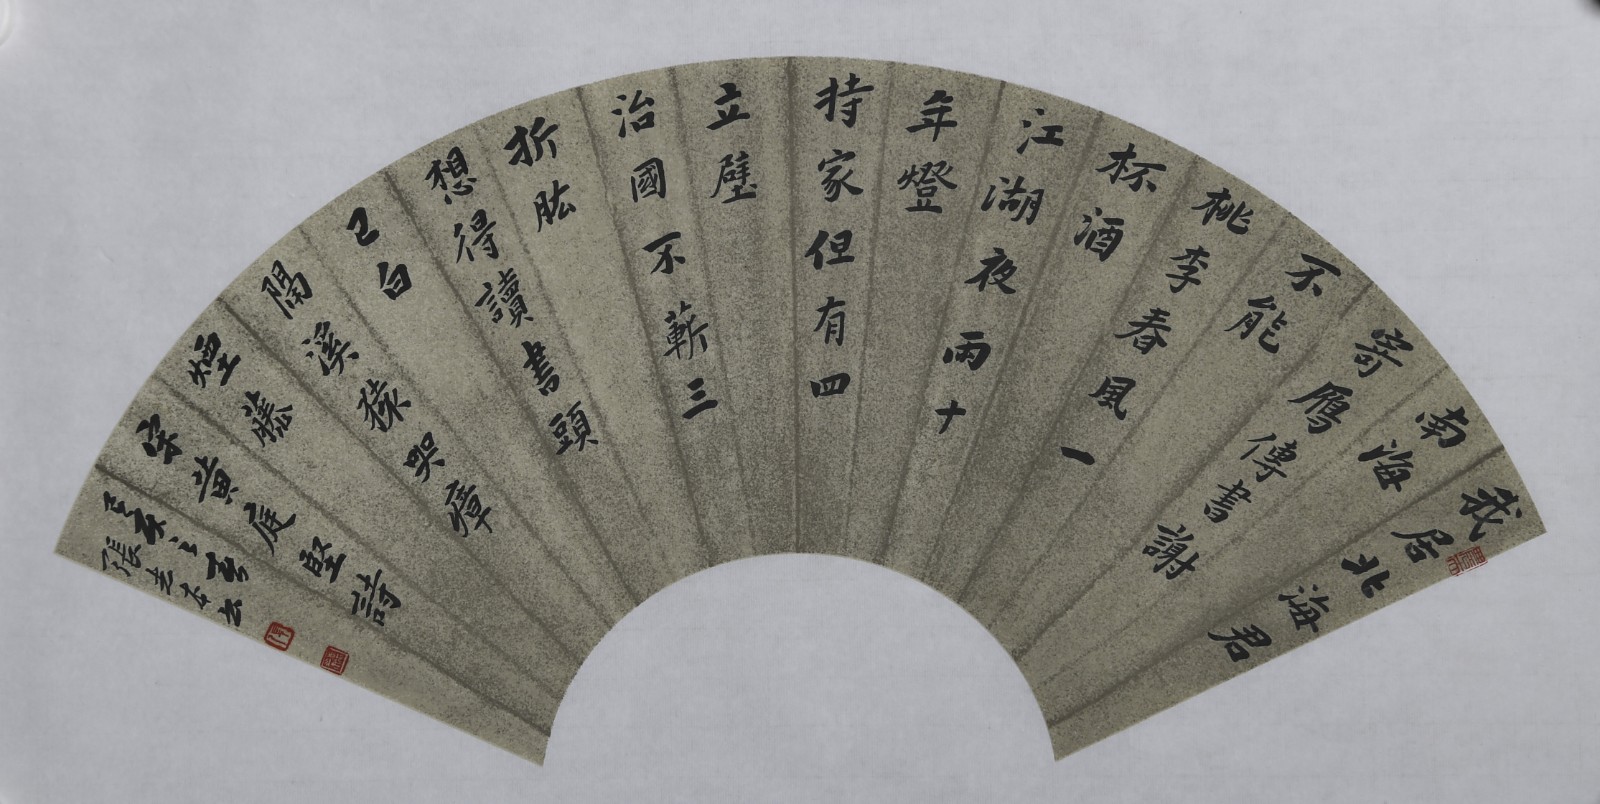 我居北海君
南海
寄鴈傳書謝
不能
桃李春風一
杯酒
江湖夜雨十
年燈
持家但有四
立壁
治國不蘄三
折肱
想得讀書頭
已白
隔溪猿哭瘴
煙藤
宋黄庭堅詩
張